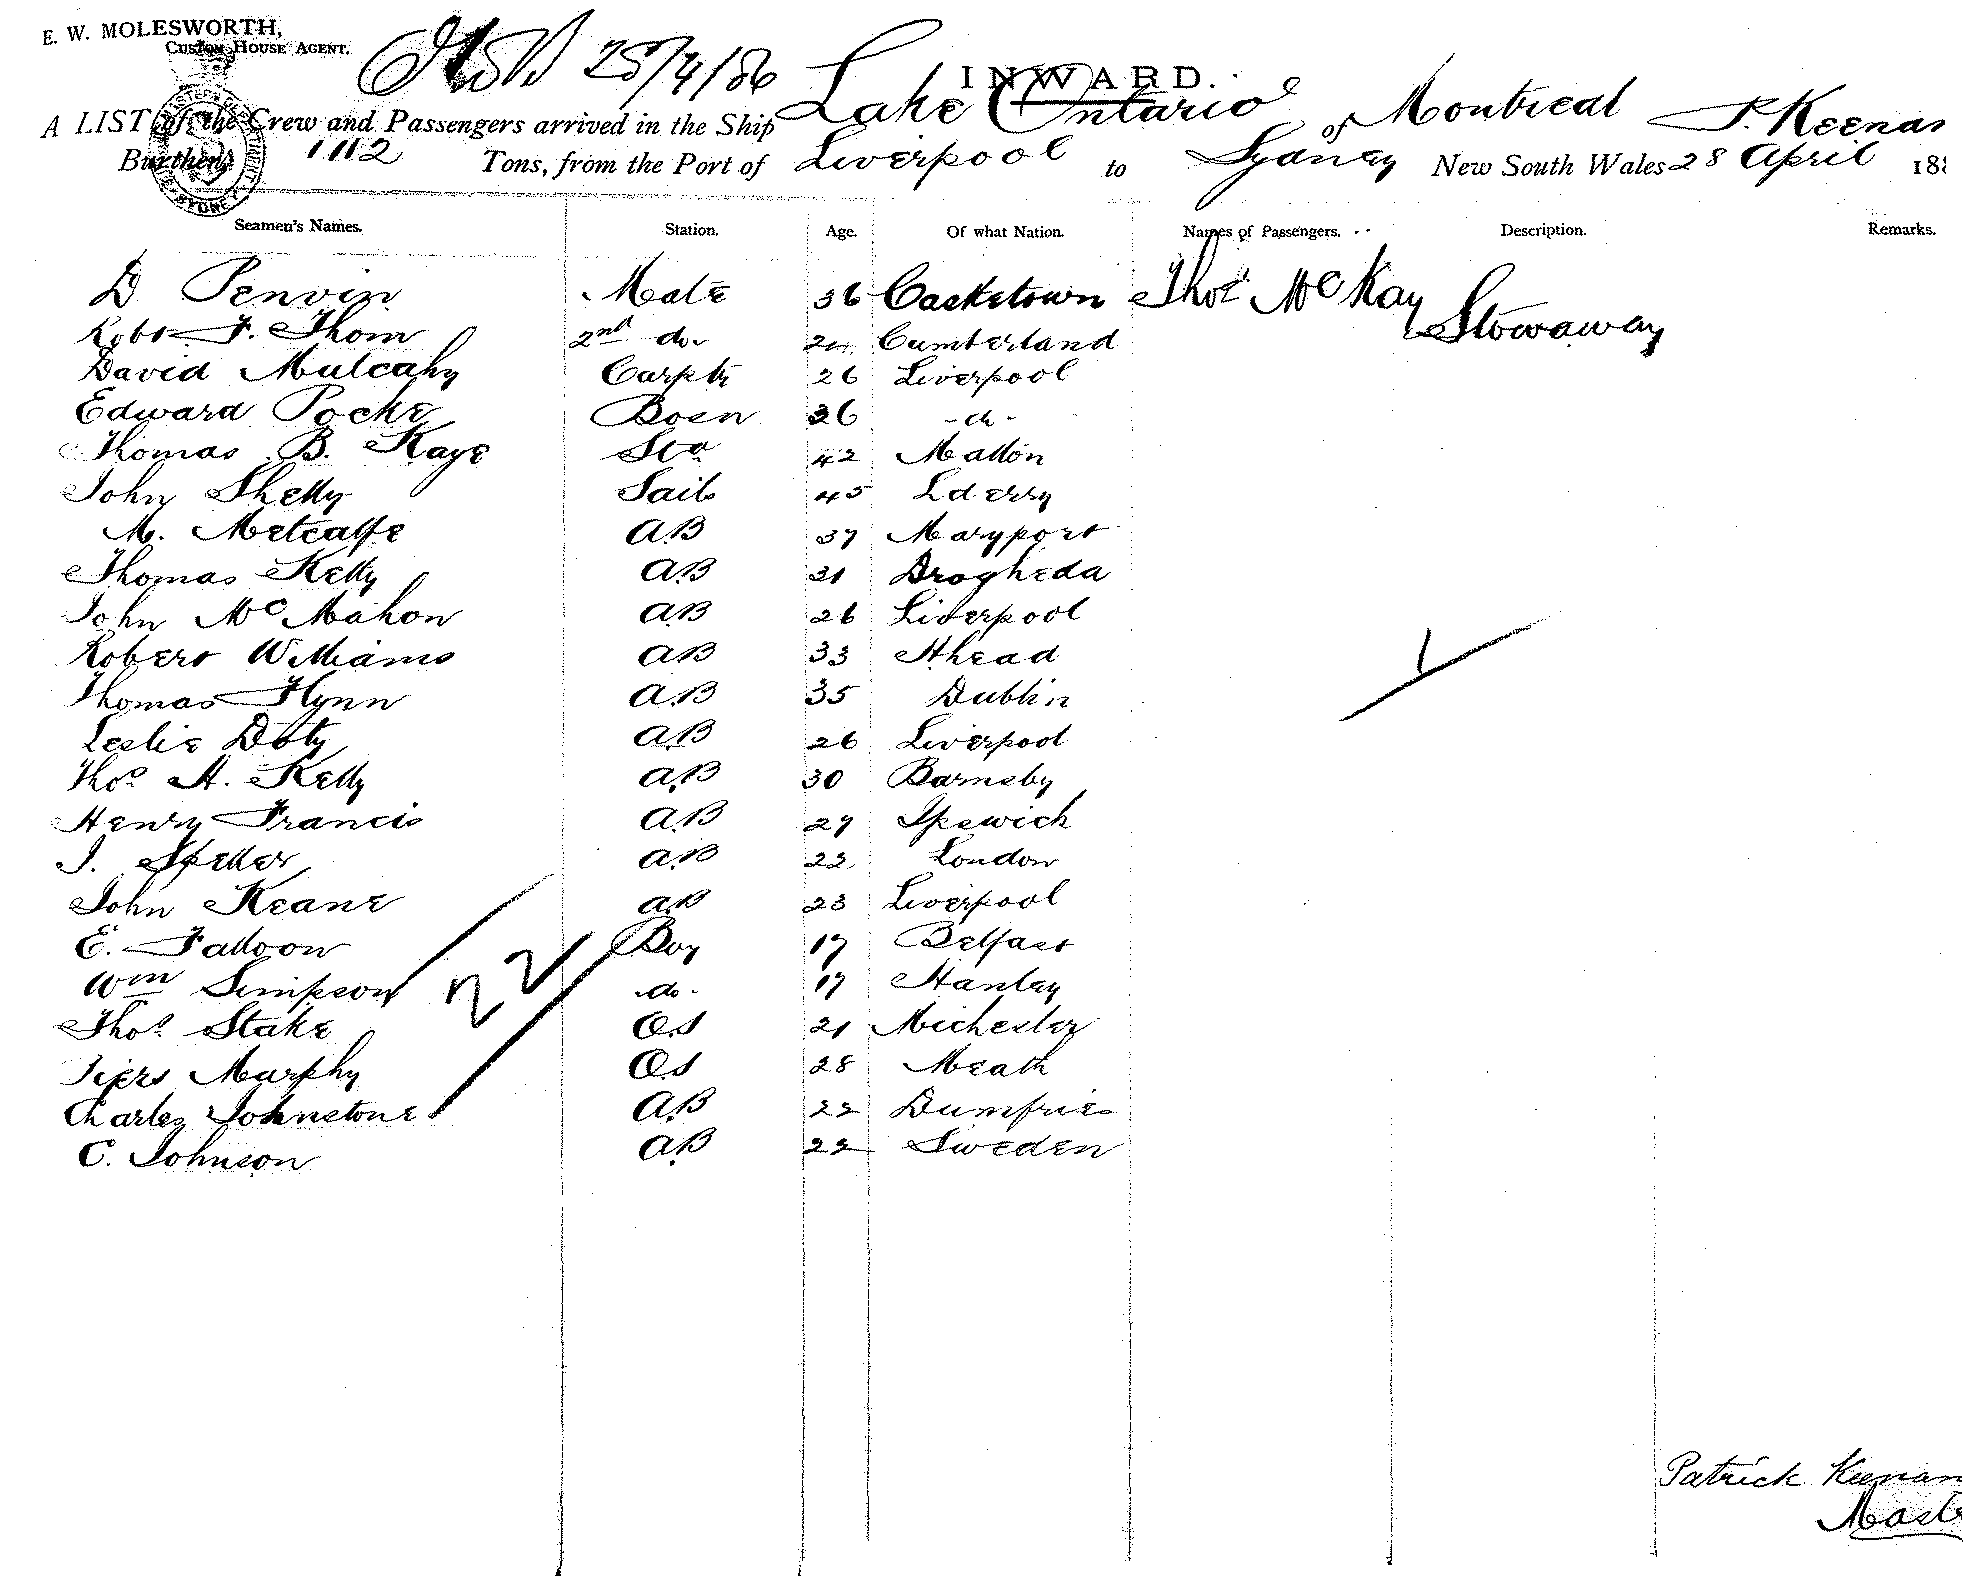 E. W. MOLESWORTH,
CUSTOM HOUSE AGENT.
28/4/86
INWARD.
A LIST of the Crew and Passengers arrived in the Ship Lake Ontario of Montreal P. Keenan
Burthen, 1112 Tons, from the Port of Liverpool to Sydney New South Wales 28 April 188
Seamen's Names. Station. Age. Of what Nation. Names of Passengers. Description. Remarks.
D Penvin Mate 36 Thos McKay
Stowaway
Robt F. Thom 2nd do. Cumberland
David Mulcahy Carptr 26 Liverpool
Edward Pocke Bosn 36 - do -
Thomas B. Kaye Std 42 Malton
John Shelly Sailr 45 Lderry
M. Metcalfe AB 37 Maryport
Thomas Kelly AB 31 Drogheda
John McMahon AB 26 Liverpool
Robert Williams AB 33 Hhead
Thomas Flynn AB 35 Dublin
Leslie Doty AB 26 Liverpool
Thos H. Kelly AB 30 Barnsby
Henry Francis AB 29 Ipswich
J. Speller AB 22 London
John Keane AB 23 Liverpool
E. Falloon Boy 17 Belfast
Wm Simpson do. 17 Hanley
22
Thos Stake OS 21 Michester
Piers Murphy OS 28 Meath
Charles Johnstone AB 22 Dumfries
C. Johnson AB 22 Sweden
1
Patrick Keenan
Maste